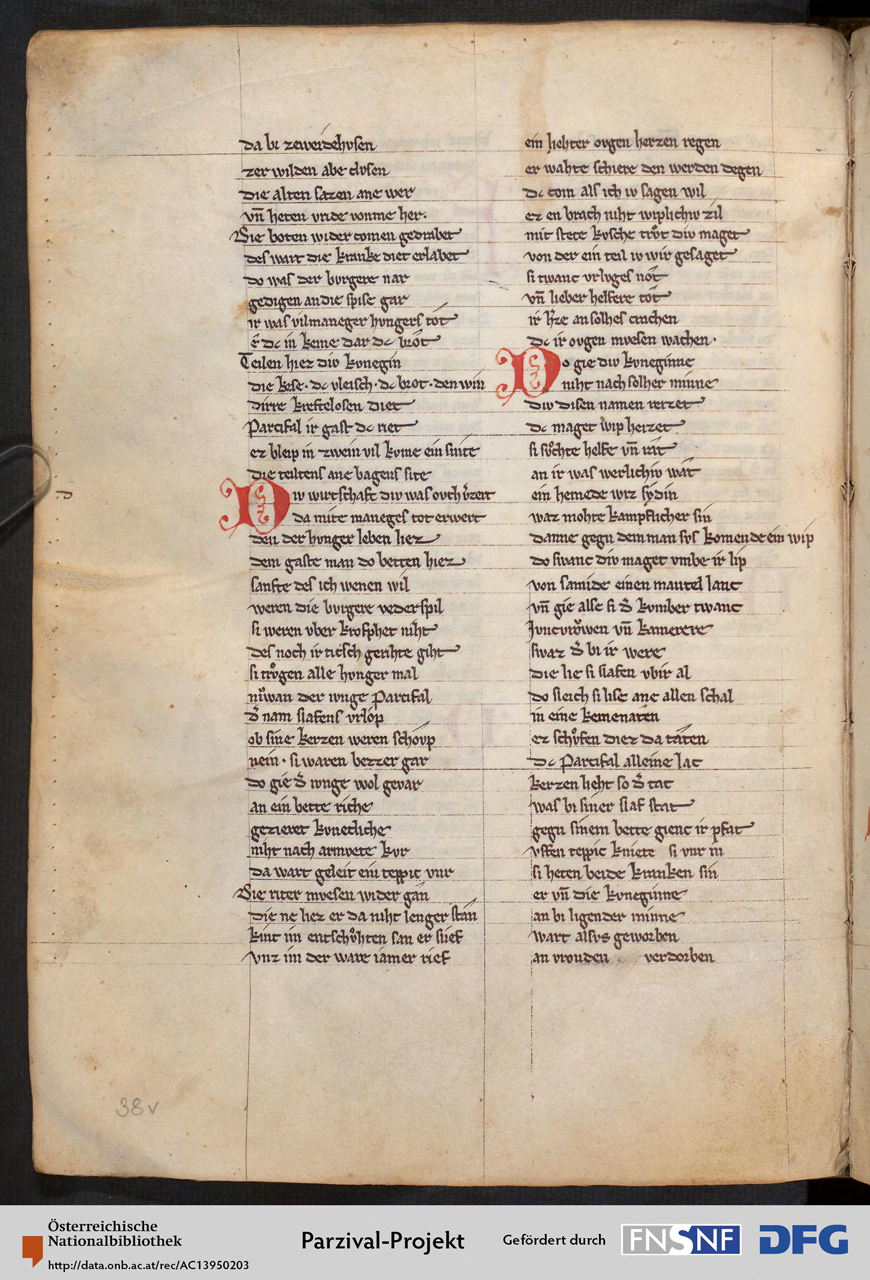 da bi zeweidehvsen
zer wilden abe clvsen
die alten sazen ane wer
vn̄ heten vride vonme her.
Sie boten wider comen gedrabet
des wart die kranke diet erlabet
do was der bvrgere nar
gedigen an die spise gar
ir was vil maneger hvngers tot
e dc in keme dar dc brot
Teilen hiez div kvnegin
die kese · dc vleisch · dc brot · den win
dirre kreftelosen diet
Parcifal ir gast dc riet
ez bleip in zwein vil kvme ein snite
die teiltens ane bagens site
Div wirtschaft div was ovch v̾zert
da mite maneges tot erwert
den der hvnger leben liez
dem gaste man do betten hiez
sanfte des ich wenen wil
weren die bvrgere vederspil
si weren vber krophet niht
des noch ir tiesch gerihte giht
si trvͦgen alle hvnger mal
niwan der ivnge Parcifal
d̾ nam slafens vrlop
ob sine kerzen weren schovp
nein · si waren bezzer gar
do gie d̾ ivnge wol gevar
an ein bette riche
gezieret kvnecliche
niht nach armvete kvr
da wart geleit ein teppic vvr
Sie riter mvesen wider gan
die ne liez er da niht lenger stan
kint im entschvhten san er slief
vnz im der ware iamer rief
ein liehter ovgen herzen regen
er wahte schiere den werden degen
dc com als ich iv sagen wil
ez en brach niht wiplichiv zil
mit stete kvsche trvͦc div maget
von der ein teil iv wir gesaget
si twanc vrlvges not
vn̄ lieber helfere tot
ir h̾ze an solhes crachen
dc ir ovgen mvesen wachen ·
Do gie div kvneginne
niht nach solher minne
div disen namen reizet
dc maget wip heizet
si svͦchte helfe vn̄ rat
an ir was werlichiv wat
ein hemede wiz sydin
waz mohte kampflicher sin
danne gegn dem man svs komende ein wip
do swanc div maget vmbe ir lip
von samide einen mantel lanc
vn̄ gie alse si d̾ kvmber twanc
Jvncvrowen vn̄ kamerere
swaz d̾ bi ir were
die lie si slafen vbir al
do sleich si lise ane allen schal
in eine kemenaten
ez schvfen diez da taten
dc Parcifal alleine lac
kerzen lieht so d̾ tac
was bi siner slaf stat
gegn sinem bette gienc ir pfat
vffen teppic kniete si vur in
si heten beide kranken sin
er vn̄ die kvneginne
an bi ligender minne
wart alsvs geworben
an vrouden verdorben
38v
Österreichische
Nationalbibliothek
http://data.onb.ac.at/rec/AC13950203
Parzival-Projekt
Gefördert durch
FNSNF
DFG